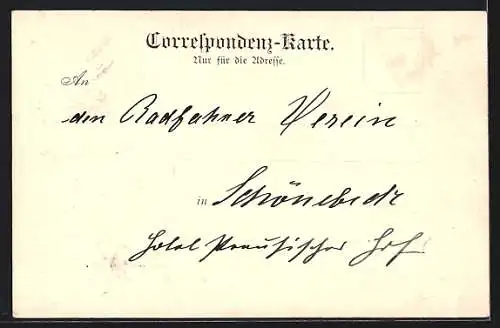 Correspondenz-Karte.
Nur für die Adresse.
An
den Radfahrer Verein
in Schönebeck
Hotel Preußischer Hof